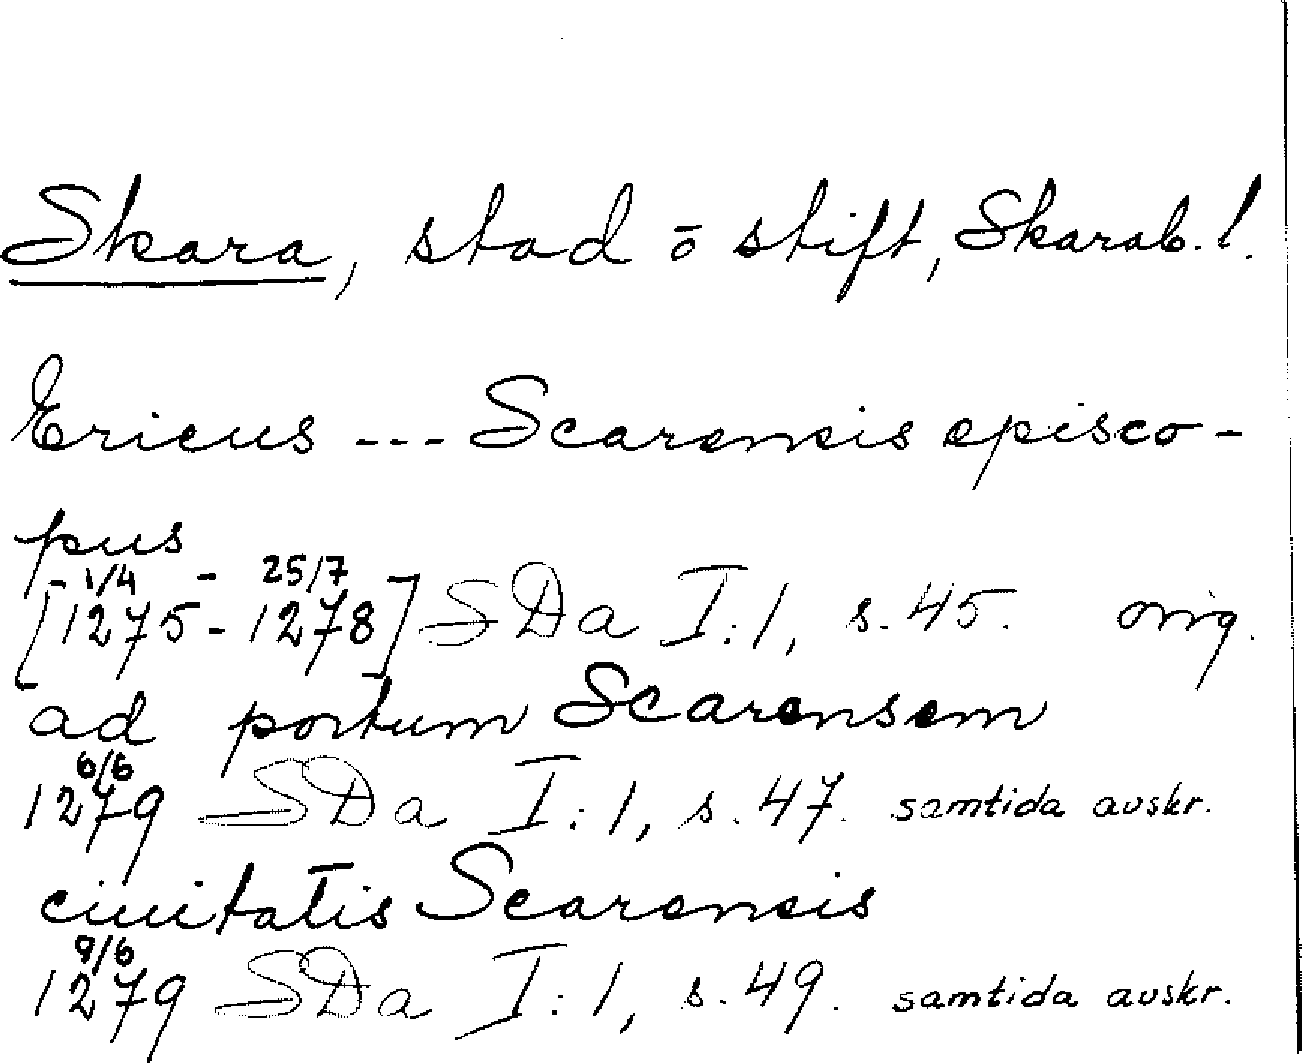 Skara, stad ō stift, Skarab. l.
Ericus --- Scarensis episco-
pus
- 1/4 - 25/7
[1275 - 1278] SDa I:1, s. 45. orig.
ad portum Scarensem
6/6
1279 SDa I:1, s. 47. samtida avskr.
ciuitatis Scarensis
9/6
1279 SDa I:1, s. 49. samtida avskr.